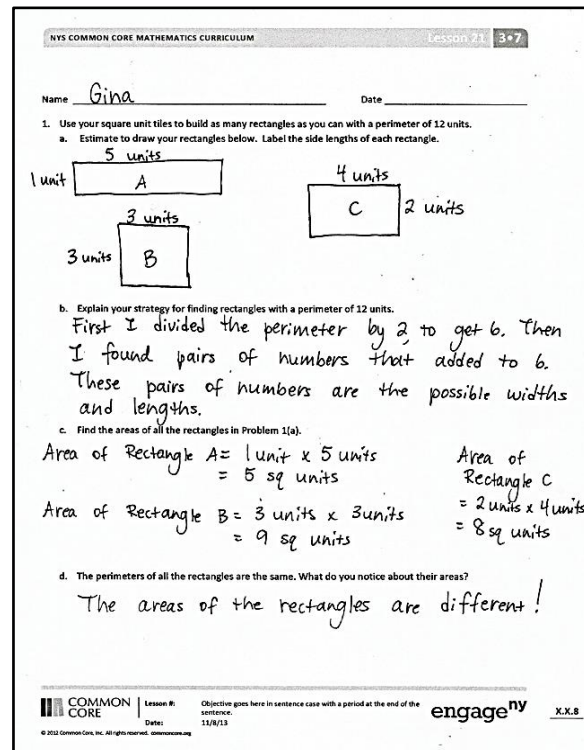 NYS COMMON CORE MATHEMATICS CURRICULUM Lesson 21 3•7
Name Gina Date
1. Use your square unit tiles to build as many rectangles as you can with a perimeter of 12 units.
a. Estimate to draw your rectangles below. Label the side lengths of each rectangle.
5 units
1 unit A
4 units
C 2 units
3 units
3 units B
b. Explain your strategy for finding rectangles with a perimeter of 12 units.
First I divided the perimeter by 2 to get 6. Then
I found pairs of numbers that added to 6.
These pairs of numbers are the possible widths
and lengths.
c. Find the areas of all the rectangles in Problem 1(a).
Area of Rectangle A = 1 unit x 5 units
= 5 sq units
Area of Rectangle B = 3 units x 3 units
= 9 sq units
Area of
Rectangle C
= 2 units x 4 units
= 8 sq units
d. The perimeters of all the rectangles are the same. What do you notice about their areas?
The areas of the rectangles are different!
COMMON
CORE
Lesson #:
Date:
Objective goes here in sentence case with a period at the end of the
sentence.
11/8/13
engage ny
X.X.8
© 2012 Common Core, Inc. All rights reserved. commoncore.org